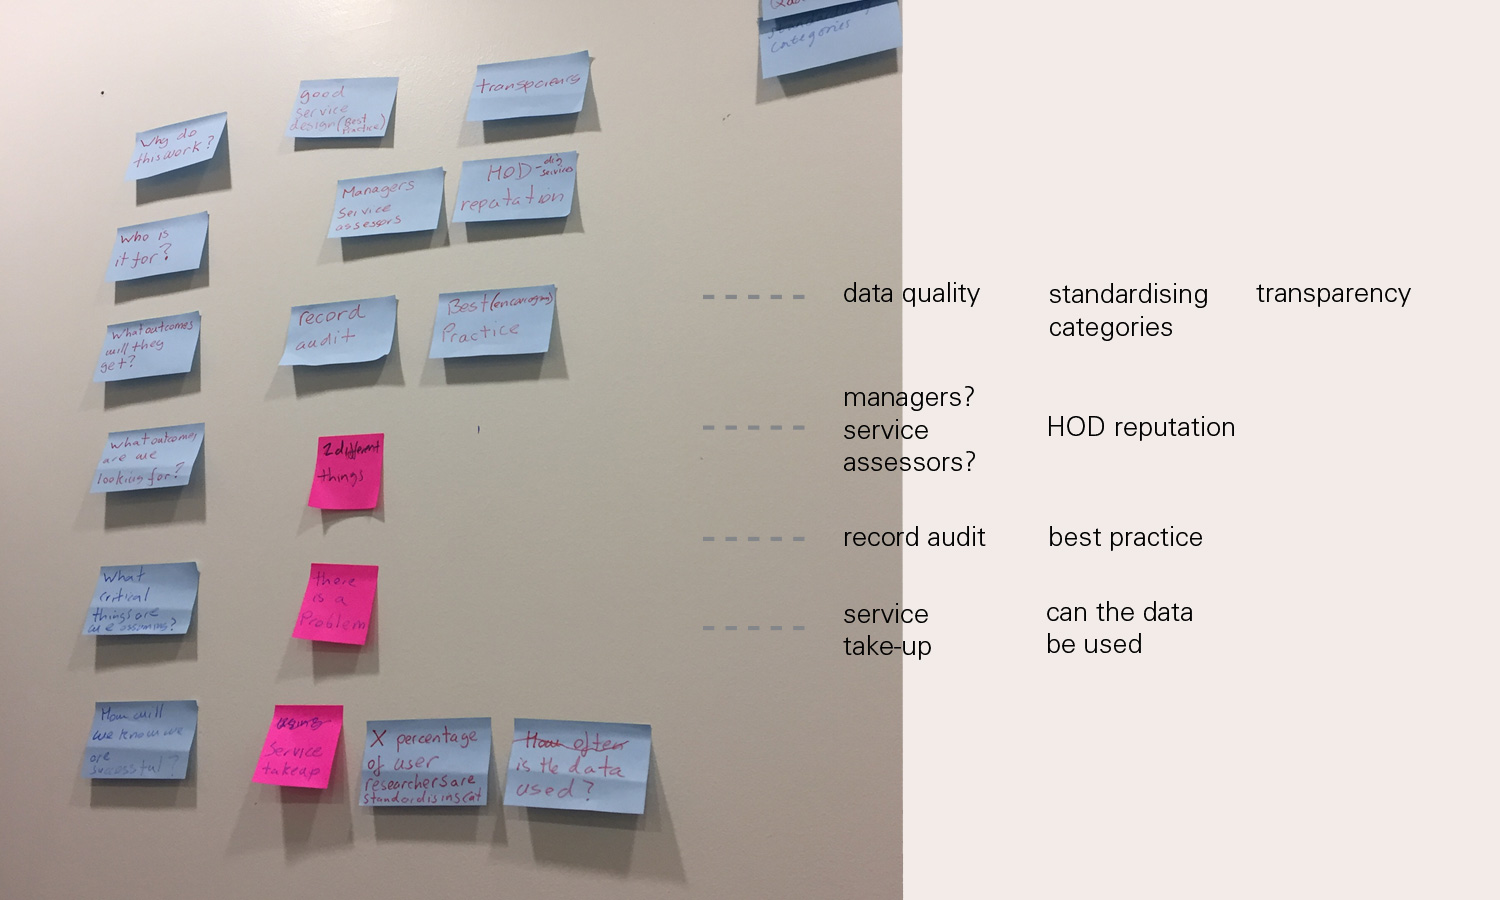 categories
good
service
design (Best
Practice)
Why do
this work?
Managers
Service
assessors
HOD - dig
service
reputation
Who is
it for?
record
audit
Best (encouraging)
Practice
What outcomes
will they
get?
What outcomes
are we
looking for?
2 different
things
What
critical
things are
we assuming?
there
is a
Problem
How will
we know we
are
successful?
using
Service
takeup
X percentage
of user
researchers are
standardising cat
How often
is the data
used?
data quality
standardising
categories
transparency
managers?
service
assessors?
HOD reputation
record audit
best practice
service
take-up
can the data
be used